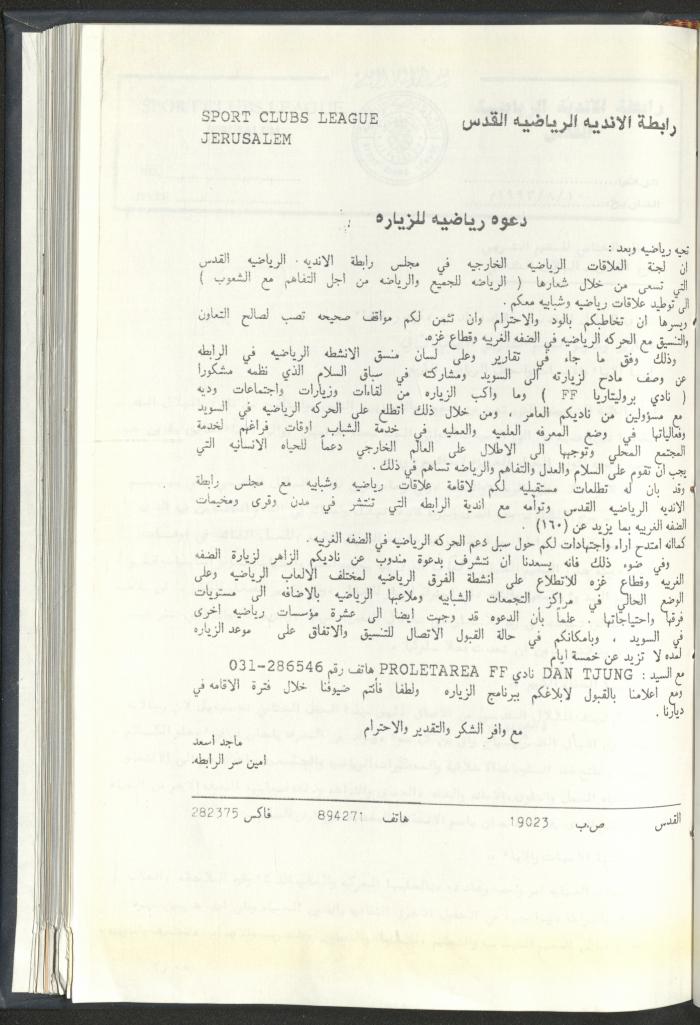 SPORT CLUBS LEAGUE
JERUSALEM
رابطة الانديه الرياضيه القدس
دعوه رياضيه للزياره
تحيه رياضيه وبعد :
ان لجنة العلاقات الرياضيه الخارجيه في مجلس رابطة الانديه الرياضيه القدس
التي تسعى من خلال شعارها ( الرياضه للجميع والرياضه من اجل التفاهم مع الشعوب )
الى توطيد علاقات رياضيه وشبابيه معكم .
ويسرها ان تخاطبكم بالود والاحترام وان تثمن لكم مواقف صحيحه تصب لصالح التعاون
والتنسيق مع الحركه الرياضيه في الضفه الغربيه وقطاع غزه.
وذلك وفق ما جاء في تقارير وعلى لسان منسق الانشطه الرياضيه في الرابطه
عن وصف مادح لزيارته الى السويد ومشاركته في سباق السلام الذي نظمه مشكورا
( نادي بروليتاريا FF ) وما واكب الزياره من لقاءات وزيارات واجتماعات وديه
مع مسؤولين من ناديكم العامر ، ومن خلال ذلك اتطلع على الحركه الرياضيه في السويد
وفعالياتها في وضع المعرفه العلميه والعمليه في خدمة الشباب اوقات فراغهم لخدمة
المجتمع المحلي وتوجهها الى الاطلال على العالم الخارجي دعماً للحياه الانسانيه التي
يجب ان تقوم على السلام والعدل والتفاهم والرياضه تساهم في ذلك .
وقد بان له تطلعات مستقبليه لكم لاقامة علاقات رياضيه وشبابيه مع مجلس رابطة
الانديه الرياضيه القدس وتوأمه مع اندية الرابطه التي تنتشر في مدن وقرى ومخيمات
الضفه الغربيه بما يزيد عن (١٦٠) .
كماانه امتدح اراء واجتهادات لكم حول سبل دعم الحركه الرياضيه في الضفه الغربيه .
وفي ضوء ذلك فانه يسعدنا ان نتشرف بدعوة مندوب عن ناديكم الزاهر لزيارة الضفه
الغربيه وقطاع غزه للاتطلاع على انشطة الفرق الرياضيه لمختلف الالعاب الرياضيه وعلى
الوضع الحالي في مراكز التجمعات الشبابيه وملاعبها الرياضيه بالاضافه الى مستويات
فرقها واحتياجاتها . علماً بأن الدعوه قد وجهت ايضا الى عشرة مؤسسات رياضيه اخرى
في السويد ، وبامكانكم في حالة القبول الاتصال للتنسيق والاتفاق على موعد الزياره
لمده لا تزيد عن خمسة ايام
مع السيد : DAN TJUNG نادي PROLETAREA FF هاتف رقم 286546-031
ومع اعلامنا بالقبول لابلاغكم ببرنامج الزياره ولطفا فأنتم ضيوفنا خلال فترة الاقامه في
ديارنا .
مع وافر الشكر والتقدير والاحترام
ماجد اسعد
امين سر الرابطه
القدس ص.ب 19023 هاتف 894271 فاكس 282375